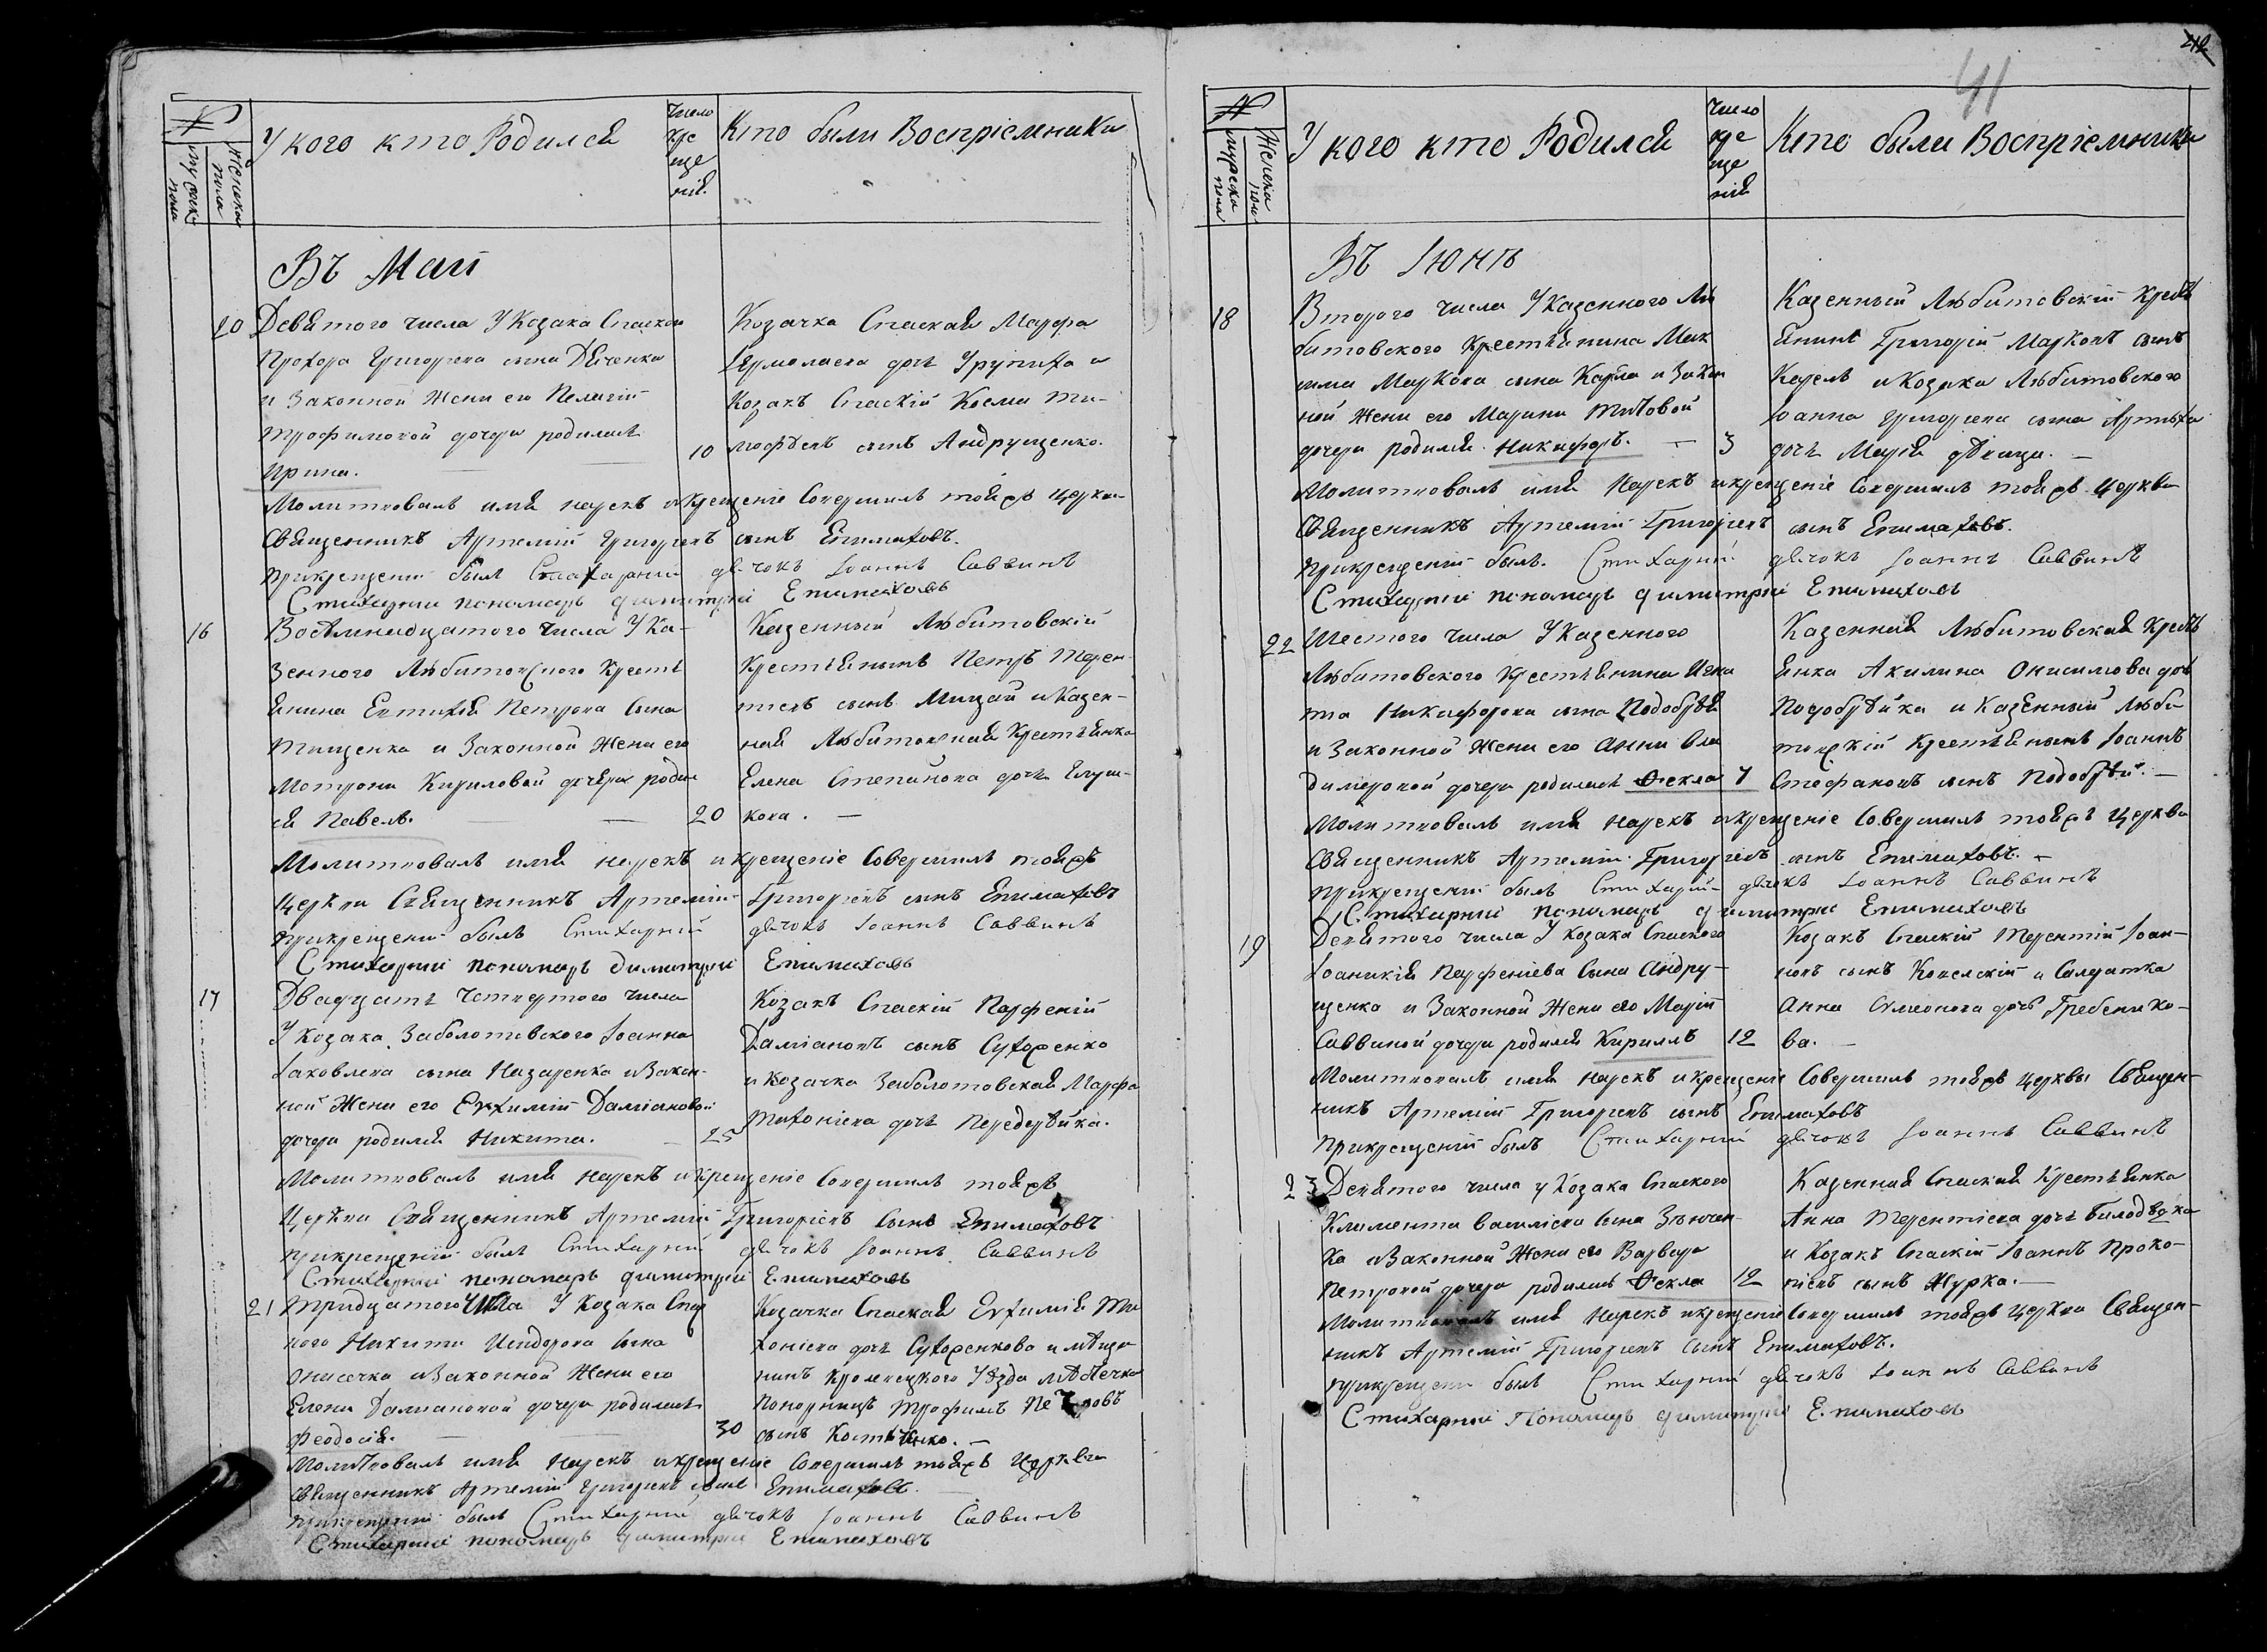 212
41
№
мужска пола
Женска пола
У кого кто Родился
Число креще нія.
Кто были Воспріемники
Въ Маи
20
Девятого числа У Козака Спаской
Прохора Григорьева сына Дяченка
и Законной Жены его Пелагіи
Трофимовой дочери родилась
Ирина.
10
Козачка Спаская Марфа
Ермолаева дочь
Козакъ Спаскій Косма Ти-
мофѣевъ сынъ Андрущенко.
Молитвовалъ имя нарекъ и крещеніе Совершилъ тойжъ церкви
Священникъ Артемій Григорьевъ сынъ Епимаховъ.
При крещеніи былъ Стихарный дьячокъ Іоаннъ Саввинъ
Стихарний пономарь Димитрій Епимаховъ
16
Восемнадцатого Числа У Ка-
зенного Любитовского Кресть
янина Евтихія Петрова Сына
Тищенка и Законной Жены его
Матроны Кириловой дочери роди
ся Павелъ.
20
Казенный Любитовскій
Крестьянинъ Петръ Терен-
тіевъ сынъ Мицай и Казен-
ная Любитовская Крестьянка
Елена Степанова дочь
кова.
Молитвовалъ имя нарекъ и крещеніе Совершилъ тойжъ
Церкви Священникъ Артемій Григорьевъ сынъ Епимаховъ
При крещеніи былъ Стихарный дьячокъ Іоаннъ Саввинъ
Стихарний пономарь Димитрій Епимаховъ
17
Двадцать Четвертого числа
У Козака Заболотовского Іоанна
Іаковлева сына Назаренка и Закон-
ной Жены его Евфиміи Даміановой
дочери родился Никита.
25
Козакъ Спаскій Парфеній
Даміановъ сынъ Сухоренко
и Козачка Заболотовская Марфа
Тихоніева дочь Передерѣйка.
Молитвовалъ имя нарекъ и крещеніе Совершилъ тойжъ
Церкви Священникъ Артемій Григоріевъ Сынъ Епимаховъ
При крещеніи былъ Стихарный дьячокъ Іоаннъ Саввинъ
Стихарний пономарь Димитрій Епимаховъ
21
Тридцатого Числа У Козака Спас
кого Никиты Исидорова сына
Лисечка и Законной Жены его
Елены Даміановой дочери родилась
Феодосія.
30
Козачка Спаская Евфимія Ти
хоніева дочь Сухоренкова и мѣща
нинъ Кролевецкого Уѣзда мѣстечка
Понорницъ Трофимъ
сынъ
Молитвовалъ имя Нарекъ и крещеніе Совершилъ тойжъ Церкви
Священникъ Артемій Григорьевъ сынъ Епимаховъ.
При крещеніи былъ Стихарный дьячокъ Іоаннъ Саввинъ
Стихарний пономарь Димитрій Епимаховъ
№
мужска пола
Женска пола
У кого кто Родился
Число креще нія
Кто были Воспріемники
Въ Іюнѣ
18
Второго числа У Казенного Лю
битовского Крестьянина Мак
сима Маркова сына Карпа и Закон
ной Жены его Марины Титовой
дочери родился Никифоръ.
3
Казенный Любитовскій Кресть
янинъ Григорій Марковъ сынъ
и Козака Любитовского
Іоанна Григорьева сына
дочь Марія дѣвица.
Молитвовалъ имя Нарекъ и крещеніе Совершилъ тойжъ Церкви
Священникъ Артемій Григорьевъ сынъ Епимаховъ.
При крещеніи былъ. Стихарный дьячокъ Іоаннъ Саввинъ
Стихарній пономарь Димитрій Епимаховъ
22
Шестого Числа У Казенного
Любитовского Крестьянина Игна
та Никифорова сына Подобрѣя
и Законной Жены его Анны Вла
димеровой дочери родилась Ѳекла
7
Казенная Любитовская Кресть
янка Акилина Онисимова дочь
Подобрѣйка и Казенный Люби
товскій Крестьянинъ Іоаннъ
Стефановъ сынъ Подобрѣй.
Молитвовалъ имя Нарекъ и крещеніе Совершилъ тойжъ Церкви
Священникъ Артемій Григорьевъ сынъ Епимаховъ.
При крещеніи былъ Стихарный дьячокъ Іоаннъ Саввинъ
Стихарний пономарь Димитрій Епимаховъ
19
Девятого числа У Козака Спаского
Іоаникія Парфеніева Сына Андру-
щенка и Законной Жены его Маріи
Саввиной дочери родился Кириллъ
12
Козакъ Спаскій Терентій Іоан-
новъ сынъ и Солдатка
Анна Симеонова дочь Гребенико-
ва.
Молитвовалъ имя Нарекъ и крещеніе Совершилъ тойжъ Церкви Священ-
никъ Артемій Григорьевъ сынъ Епимаховъ
При крещеніи былъ Стихарный дьячокъ Іоаннъ Саввинъ
23
Девятого числа у Козака Спаского
Климента Василіева Сына Зѣнчен-
ка и Законной Жены его Варвары
Петровой дочери родилась Ѳекла
12
Казенная Спаская Крестьянка
Анна Терентіева дочь
и Козакъ Спаскій Іоаннъ Проко-
піевъ сынъ Журка.
Молитвовалъ имя Нарекъ и крещеніе Совершилъ тойжъ Церкви Священ-
никъ Артемій Григорьевъ Сынъ Епимаховъ.
При крещеніи былъ Стихарный дьячокъ Іоаннъ Саввинъ
Стихарный Пономарь Димитрій Епимаховъ